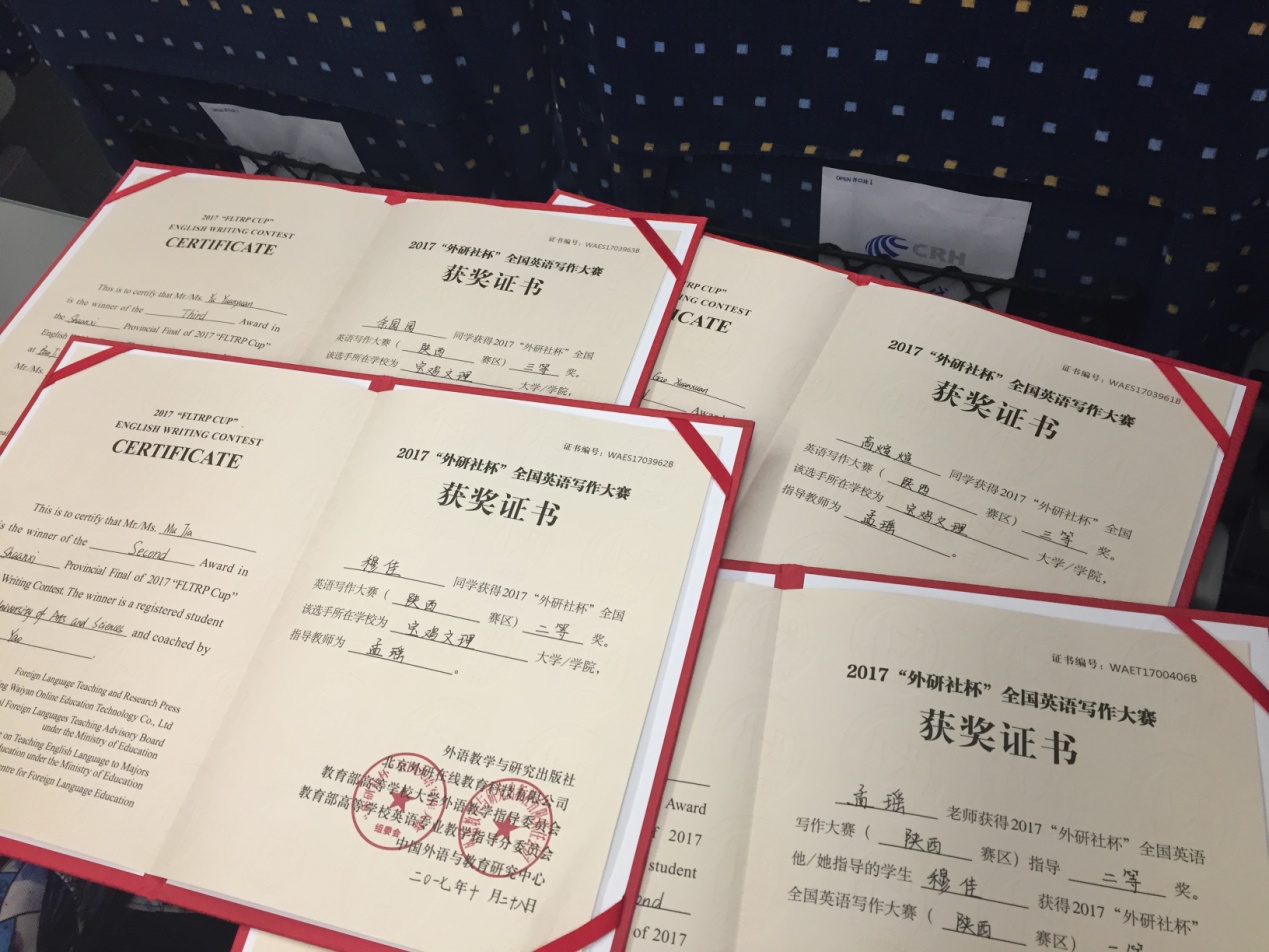 2017 "FLTRP CUP"
ENGLISH WRITING CONTEST
CERTIFICATE
This is to certify that Mr./Ms. Yu Yuanyuan
is the winner of the Third Award in
the Shaanxi Provincial Final of 2017 "FLTRP Cup"
English
at
Mr./Ms.
证书编号：WAES1703963B
2017 “外研社杯” 全国英语写作大赛
获奖证书
余园园 同学获得2017 “外研社杯” 全国
英语写作大赛（ 陕西 赛区） 三等 奖。
该选手所在学校为 宝鸡文理 大学/学院，
RP CUP"
NG CONTEST
ICATE
Gao Xuanxuan
Award
证书编号：WAES1703961B
2017 “外研社杯” 全国英语写作大赛
获奖证书
高煊煊 同学获得2017 “外研社杯” 全国
英语写作大赛（ 陕西 赛区） 三等 奖。
该选手所在学校为 宝鸡文理 大学/学院，
指导教师为 孟瑶 。
2017 "FLTRP CUP"
ENGLISH WRITING CONTEST
CERTIFICATE
This is to certify that Mr./Ms. Mu Jia
is the winner of the Second Award in
Shaanxi Provincial Final of 2017 "FLTRP Cup"
Writing Contest. The winner is a registered student
University of Arts and Sciences and coached by
Yao .
Foreign Language Teaching and Research Press
ng Waiyan Online Education Technology Co., Ltd
l Foreign Languages Teaching Advisory Board
under the Ministry of Education
e on Teaching English Language to Majors
ducation under the Ministry of Education
entre for Foreign Language Education
证书编号：WAES1703962B
2017 “外研社杯” 全国英语写作大赛
获奖证书
穆佳 同学获得2017 “外研社杯” 全国
英语写作大赛（ 陕西 赛区） 二等 奖。
该选手所在学校为 宝鸡文理 大学/学院，
指导教师为 孟瑶 。
外语教学与研究出版社
北京外研在线教育科技有限公司
教育部高等学校大学外语教学指导委员会
教育部高等学校英语专业教学指导分委员会
中国外语与教育研究中心
二〇一七年十月二十八日
组委会
Award
f 2017
student
and
of 2017
证书编号：WAET1700406B
2017 “外研社杯” 全国英语写作大赛
获奖证书
孟瑶 老师获得2017 “外研社杯” 全国英语
写作大赛（ 陕西 赛区）指导 二等 奖。
他/她指导的学生 穆佳 获得2017 “外研社杯”
全国英语写作大赛（ 陕西 赛区） 二等
CRH